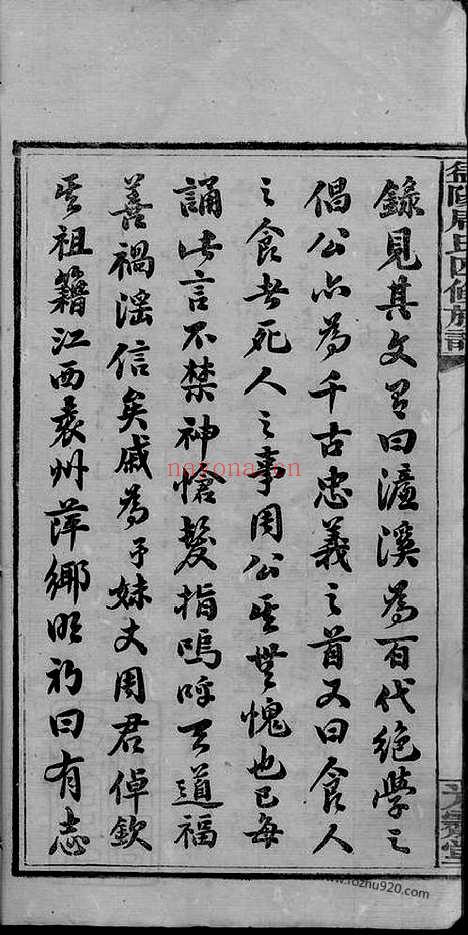 錄見其文有曰濂溪為百代絕學之
倡公亦為千古忠義之首又曰食人
之食者死人之事周公其無愧也已每
誦此言不禁神愴髮指嗚呼天道福
善禍淫信矣戚為予妹丈周君倬欽
其祖籍江西袁州萍鄉明初曰有志
周氏四修族譜
堂
nayona.cn
www.fozhu920.com